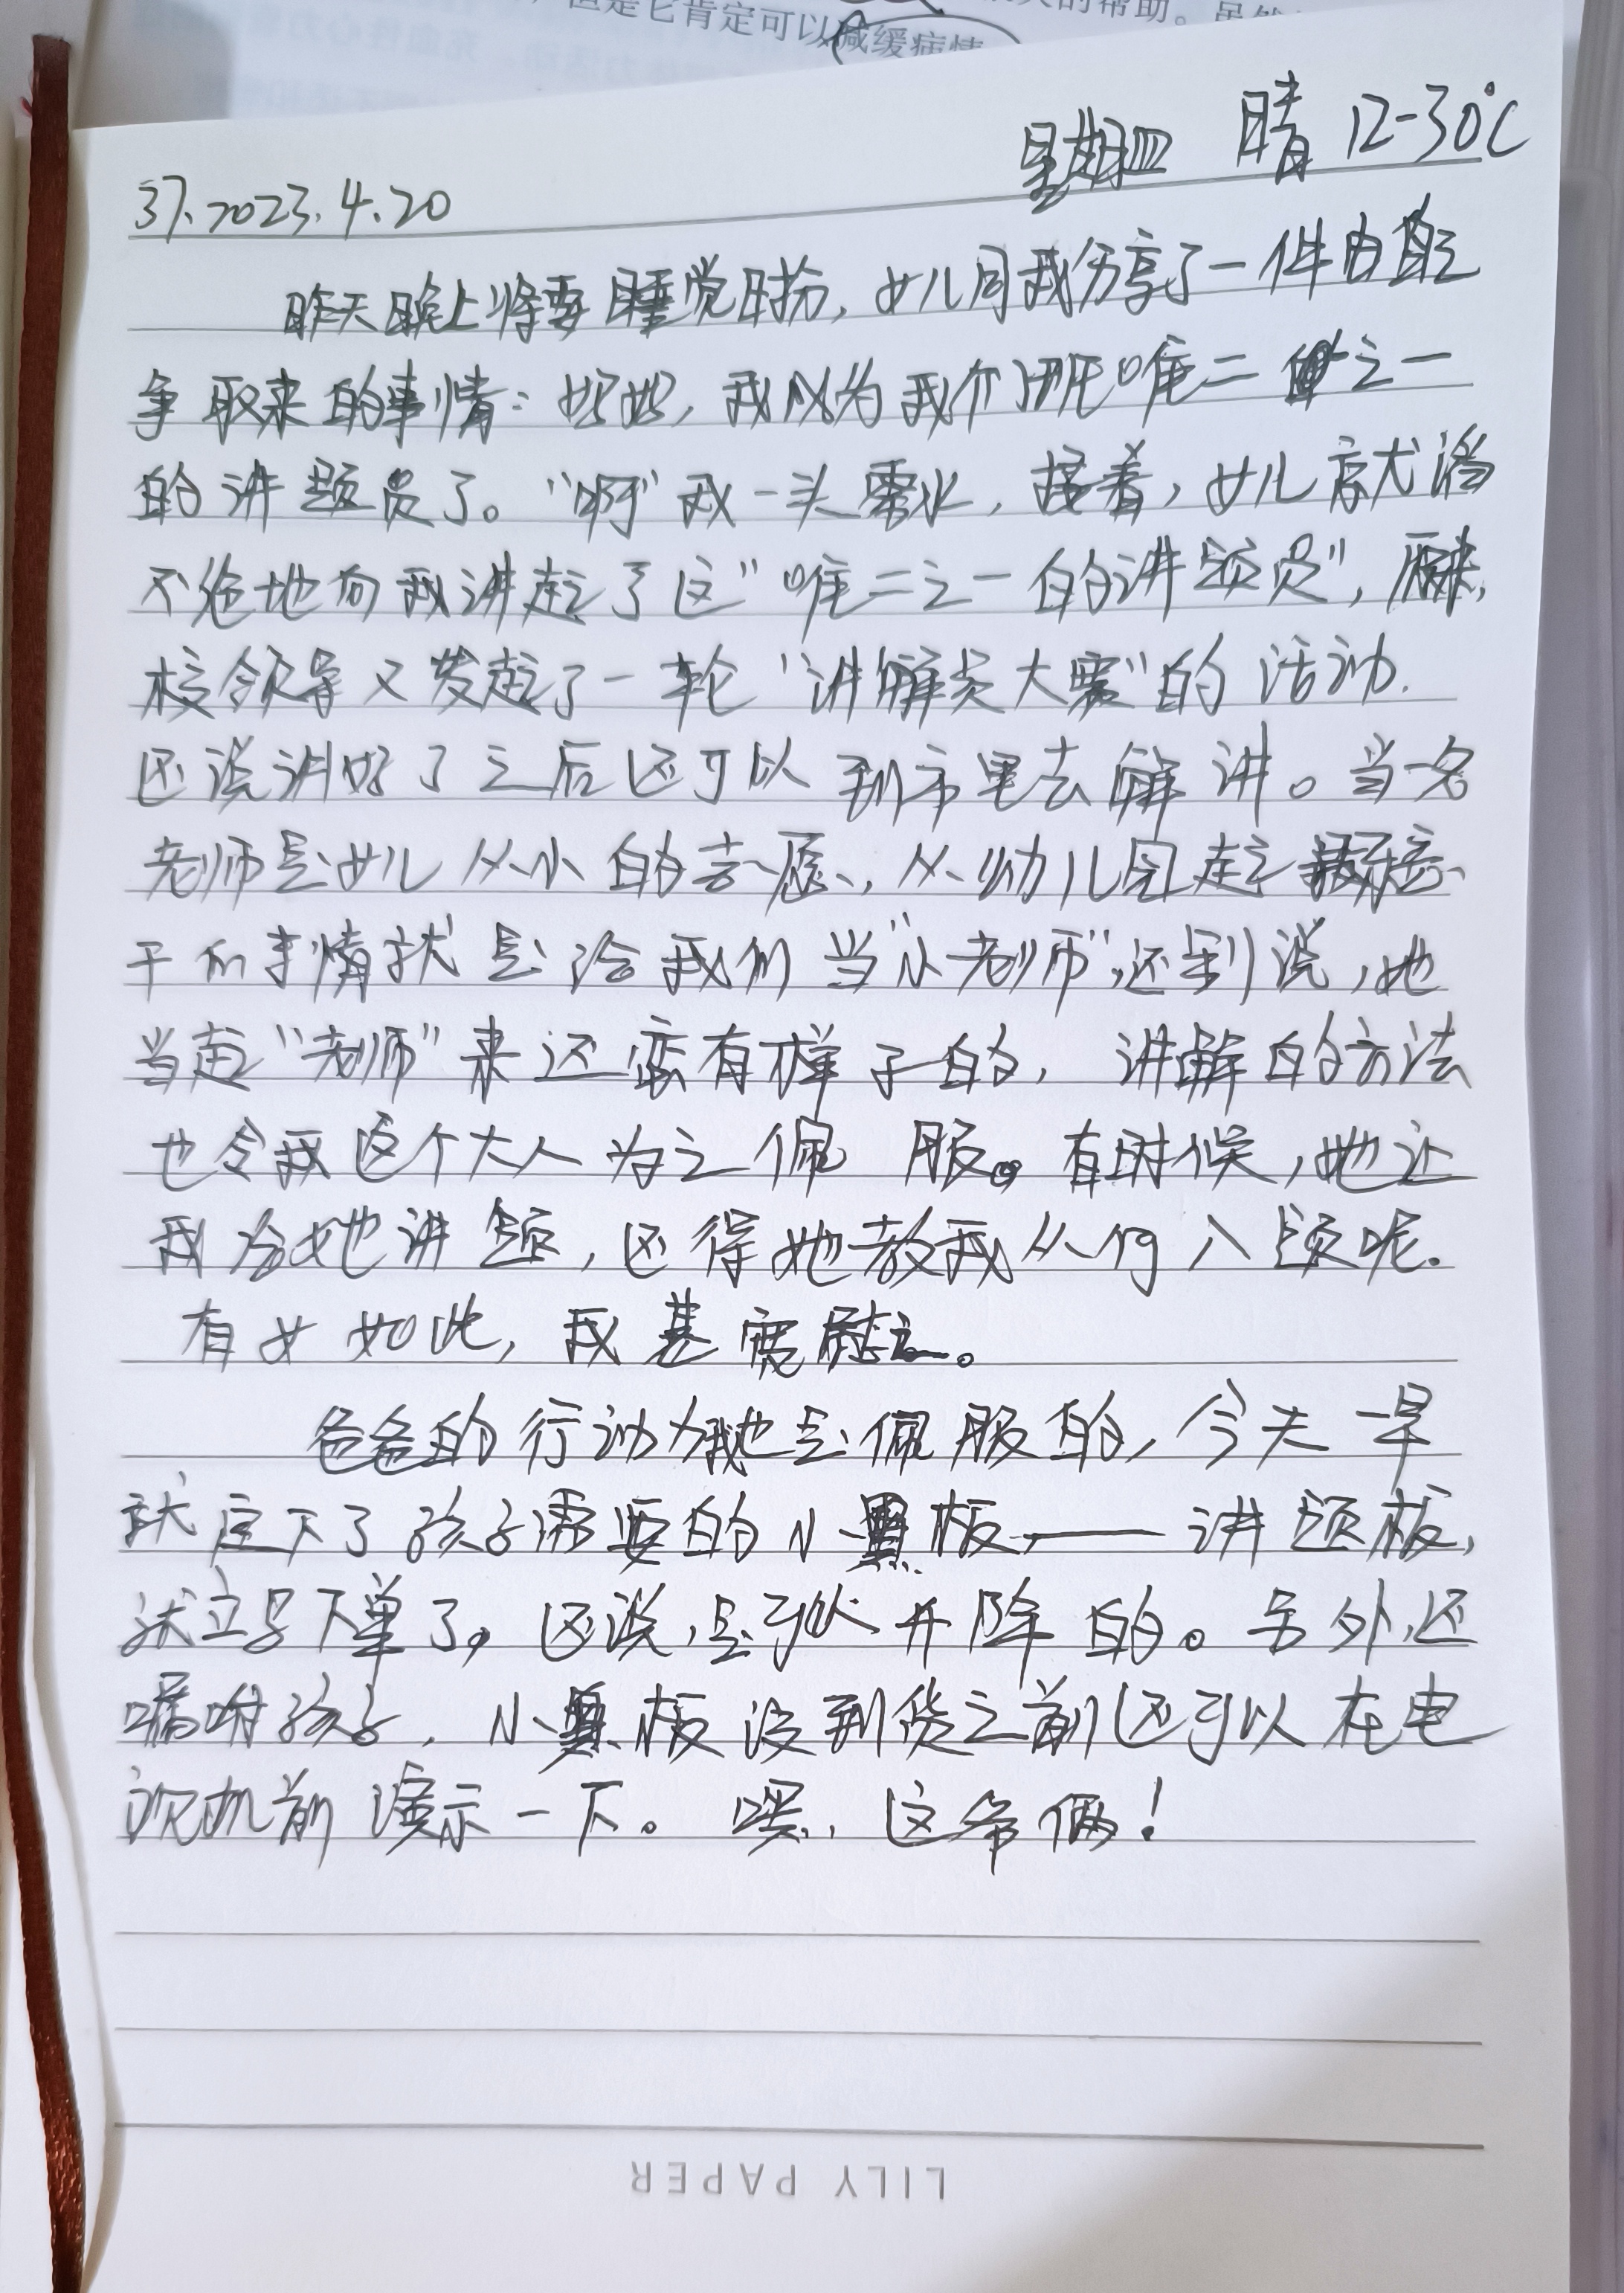 但是它肯定可以减缓病情
的帮助。虽然
星期四 晴 12-30℃
37.2023.4.20
昨天晚上将要睡觉时分,女儿同我分享了一件由自己
争取来的事情:妈妈,我成为我们班唯二之一
的讲题员了。“啊”我一头雾水,接着,女儿就滔
不绝地向我讲起了这“唯二之一的讲题员”,原来,
校领导又发起了一轮“讲解员大赛”的活动.
还说讲好了之后还可以到市里去解讲。当一名
老师是女儿从小的志愿,从幼儿园起
干的事情就是给我们当“小老师”,还别说,她
当起“老师”来还蛮有样子的,讲解的方法
也令我这个大人为之佩服。有时候,她让
我给她讲题,还得她教我从何入题呢.
有女如此,我甚宽慰。
爸爸的行动力我也是佩服的,今天一早
就定下了孩子需要的小黑板,——讲题板,
就立马下单了,还说,是可以升降的。另外,还
嘱咐孩子,小黑板没到货之前还可以在电
视机前演示一下。嘿,这爷俩!
LILY PAPER